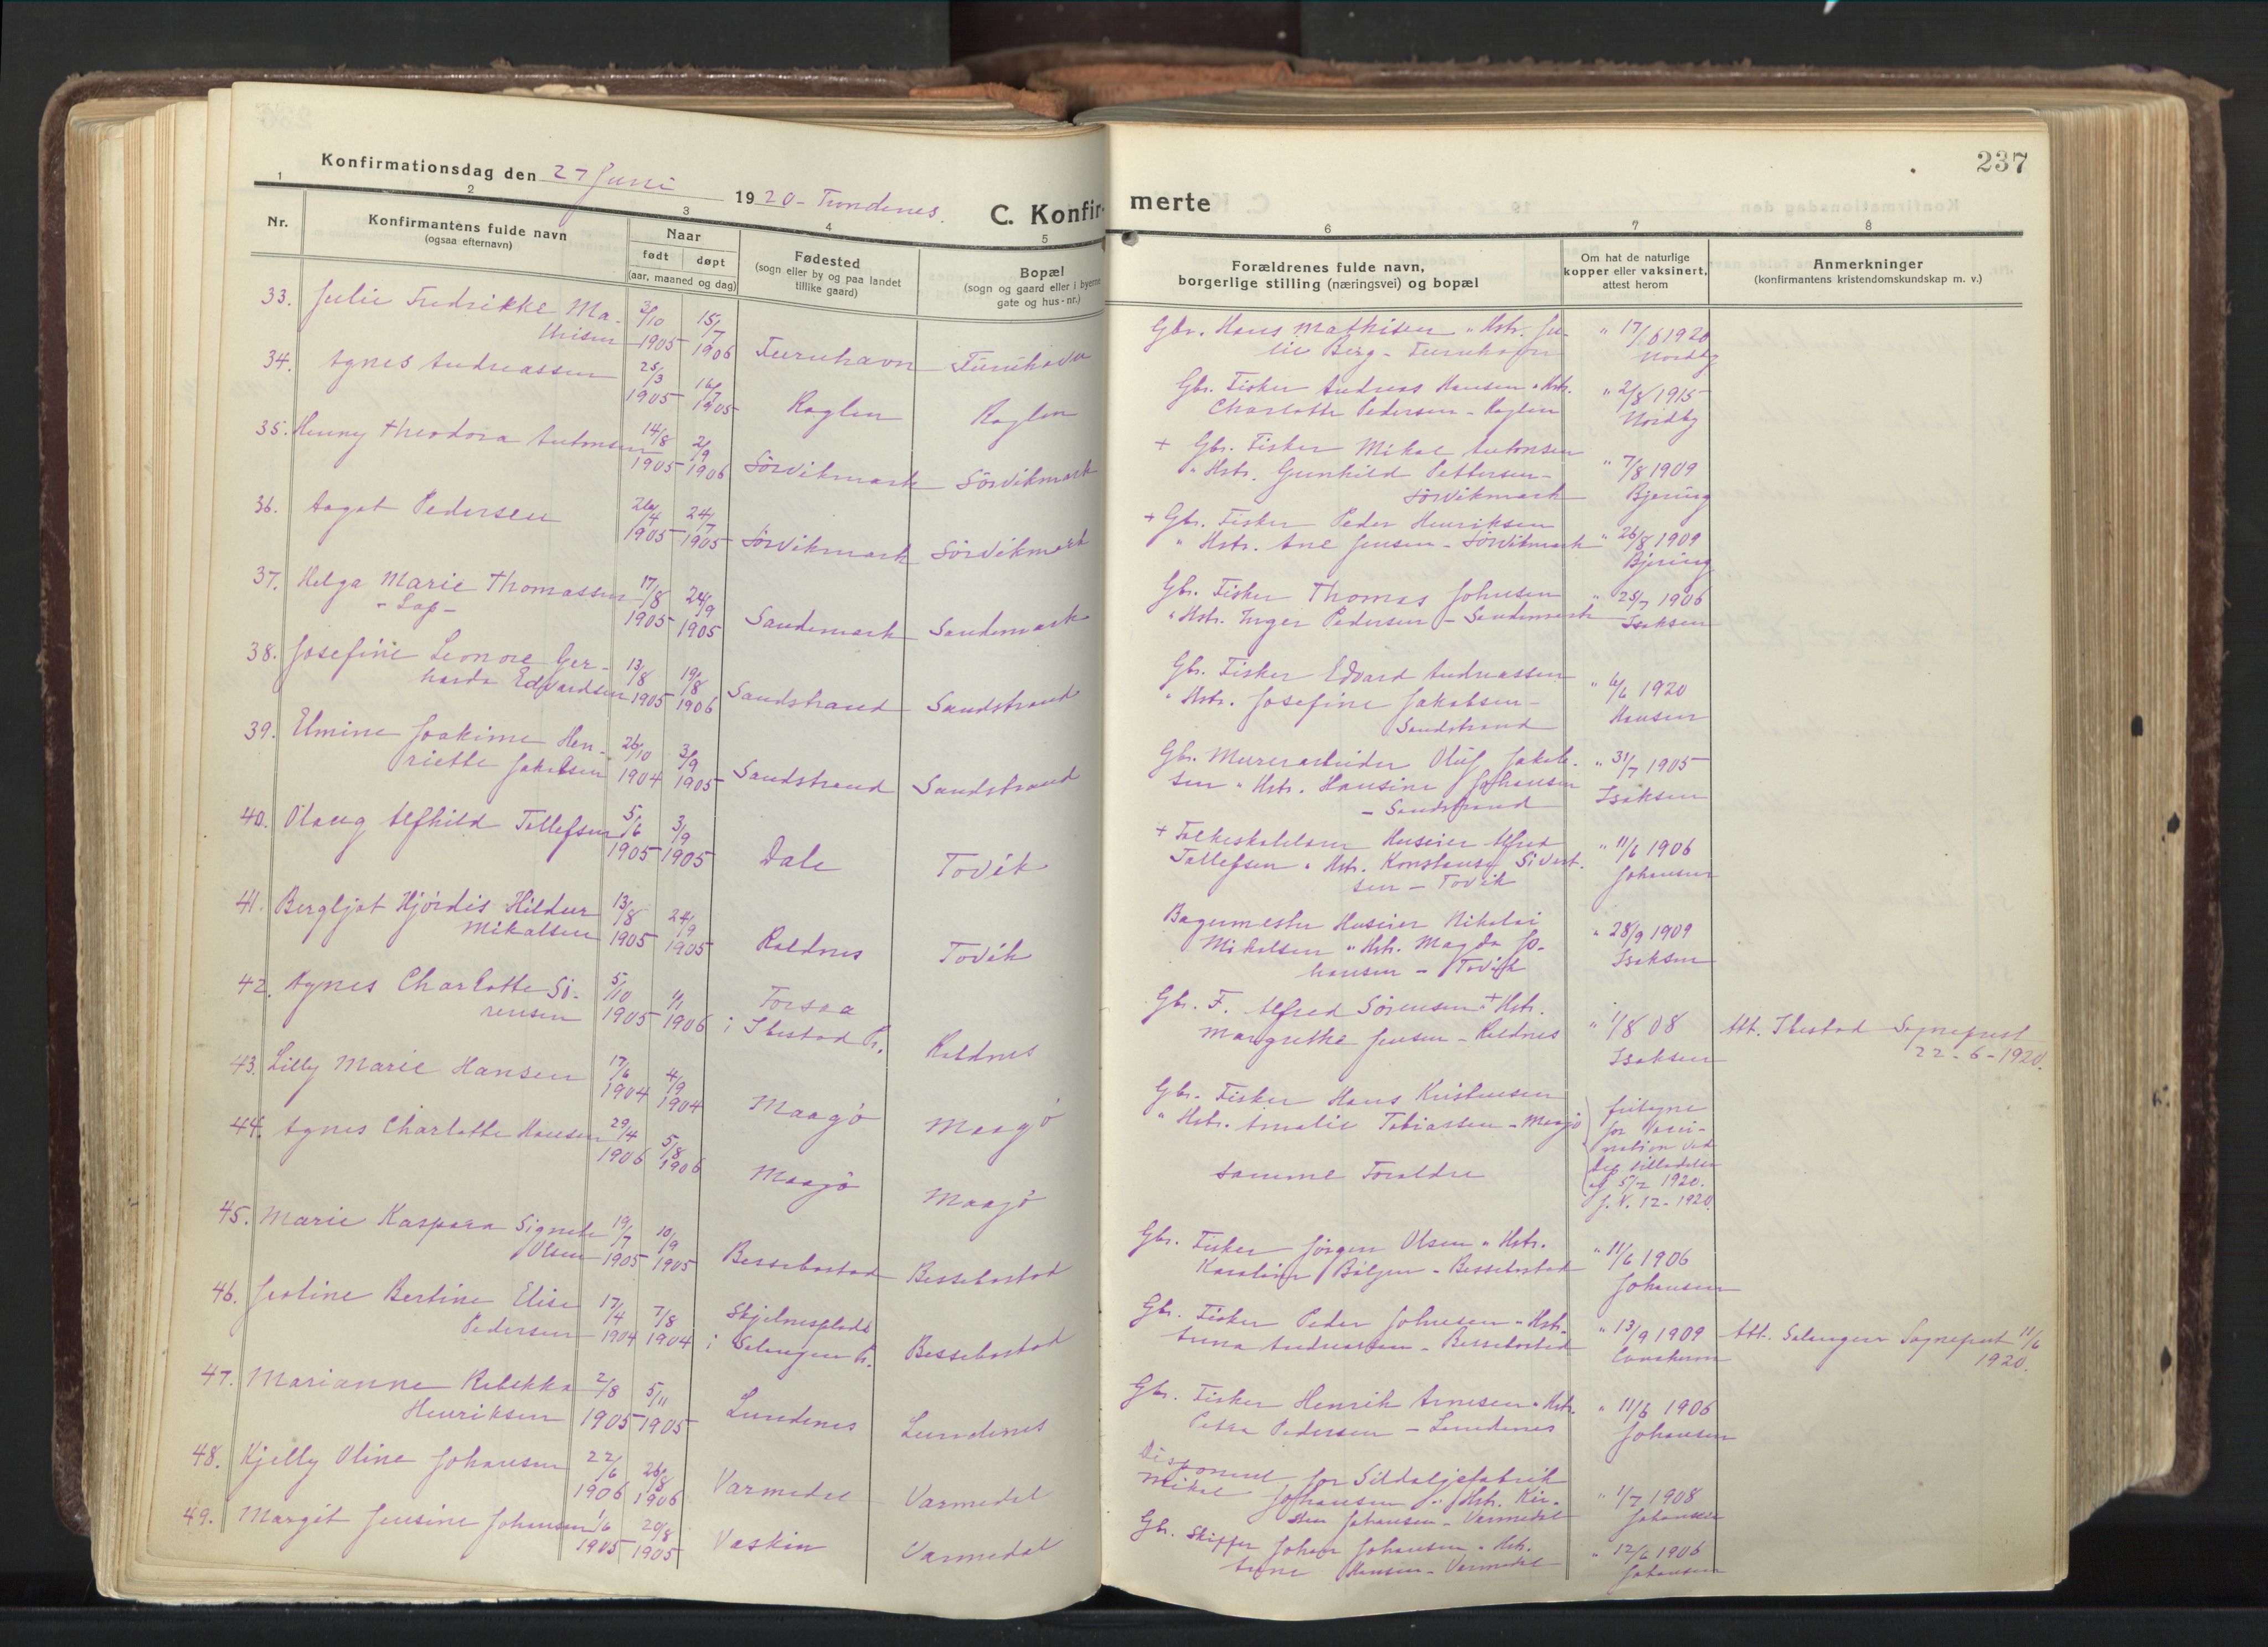 237
Konfirmationsdag den 27 Juni 1920 - Trondenes.
C. Konfir- merte
1 2 3 4 5 6 7 8
Nr.
Konfirmantens fulde navn
(ogsaa efternavn)
Naar
født døpt
(aar, maaned og dag)
Fødested
(sogn eller by og paa landet
tillike gaard)
Bopæl
(sogn og gaard eller i byerne
gate og hus-nr.)
Forældrenes fulde navn,
borgerlige stilling (næringsvei) og bopæl
Om hat de naturlige
kopper eller vaksinert,
attest herom
Anmerkninger
(konfirmantens kristendomskundskap m. v.)
33. Julie Fredrikke Ma- 15/7 Gbr. Hans Mathisen " Hstr. Ju- " 17/6 1920
thisen 1905 1906 lie Berg - Nordby
34. Agnes Andreassen 25/3 1905 16/7 1905 Gbr. Fisker Andreas Hansen " Hstr. " 2/8 1915
Charlotte Pedersen - Nordby
35. Henny Theodora Antonsen 14/8 1905 2/9 1906 Sörvikmark Sörvikmark + Gbr. Fisker Mikal Antonsen
" Hstr. Gunhild Pettersen - " 7/8 1909
Sörvikmark Bjering
36. Aagot Pedersen 26/4 1905 24/7 1905 Sörvikmark Sörvikmark + Gbr. Fisker Peder Henriksen
" Hstr. Ane Jensen - Sörvikmark " 26/8 1909
Bjering
37. Helga Marie Thomassen 17/8 1905 24/9 1905 Sandemark Sandemark Gbr. Fisker Thomas Johnsen " 25/7 1906
- Lap - " Hstr. Inger Pedersen - Sandemark Isaksen
38. Josefine Leonore Ger- 13/8 19/8 Gbr. Fisker Edvard Andreassen
harda Edvardsen 1905 1906 Sandstrand Sandstrand " Hstr. Josefine Jakobsen - " 6/6 1920
Sandstrand Hansen
39. Elmine Joakime Hen- 26/10 3/9 Gbr. Murerarbeider Oluf Jakob- " 31/7 1905
riette Jakobsen 1904 1905 Sandstrand Sandstrand sen " Hstr. Hansine Johansen Isaksen
- Sandstrand
40. Olaug Alfhild Tollefsen 5/6 1905 3/9 1905 Dale Tovik + Huseier Alfred " 11/6 1906
Tollefsen " Hstr. Konstanse Sivert- Johansen
sen - Tovik
41. Bergljot Hjørdis Hildur 13/8 24/9 Bagermester Huseier Nikolai " 28/9 1909
Mikalsen 1905 1905 Tovik Mikalsen " Hstr. Magda Jo- Isaksen
hansen - Tovik
42. Agnes Charlotte Sö- 5/10 1/1 Forsaa Gbr. F. Alfred Sörensen + Hstr. " 1/8 08 Att. Ibestad Sogneprest
rensen 1905 1906 i Ibestad Pr. Margrethe Jensen - Isaksen 22-6-1920.
43. Lilly Marie Hansen 17/6 1904 4/9 1904 Maagö Maagö Gbr. Fisker Hans Kristensen
" Hstr. Amalie Tobiassen - Maagö
44. Agnes Charlotte Hansen 29/4 1906 5/8 1906 Maagö Maagö samme Foreldre
for Vacci-
nation ved
af 5/2 1920.
J. V. 12-1920.
45. Marie Kaspara Signete 19/7 10/9 Gbr. Fisker Jörgen Olsen " Hstr. " 11/6 1906
Olsen 1905 1905 Bessebostad Bessebostad - Bessebostad Johansen
46. Bertine Elise 17/4 7/8 Gbr. Fisker Peder Johnsen " Hstr. " 13/9 1909 Att. Salangen Sogneprest 11/6
Pedersen 1904 1904 i Salangen Pr. Bessebostad Anna Andreassen - Bessebostad 1920.
47. Marianne Rebekka 2/8 5/11 Gbr. Fisker Henrik Arnesen " Hstr. " 11/6 1906
Henriksen 1905 1905 Lundenes Lundenes Petra Pedersen - Lundenes Johansen
48. Kjelly Oline Johansen 22/6 1906 26/8 1906 Varmedal Varmedal Disponent for Sildoljefabrik
Mikal Johansen " Hstr. Kir- " 1/7 1908
sten Johansen - Varmedal Johansen
49. Margit Jensine Johansen 1/6 1905 20/8 1905 Vaskin Varmedal Gbr. Skipper Johan Johansen " Hstr. " 12/6 1906
Anne Hansen - Varmedal Johansen